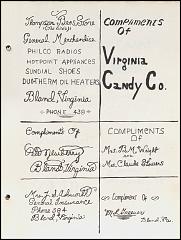 Thompson Bros. Store
General Merchandise
PHILCO RADIOS
HOTPOINT APPLIANCES
SUNDIAL SHOES
DUOTHERM OIL HEATERS
Bland, Virginia
PHONE 438
Compliments
Of
Virginia
Candy Co.
Compliments Of
Newberry
Bland, Virginia
COMPLIMENTS
OF
Mrs. B. M. Wright
And
Mrs. Claude Stowers
General Insurance
Phone
Bland, Virginia
Compliment Of
Bland, Va.